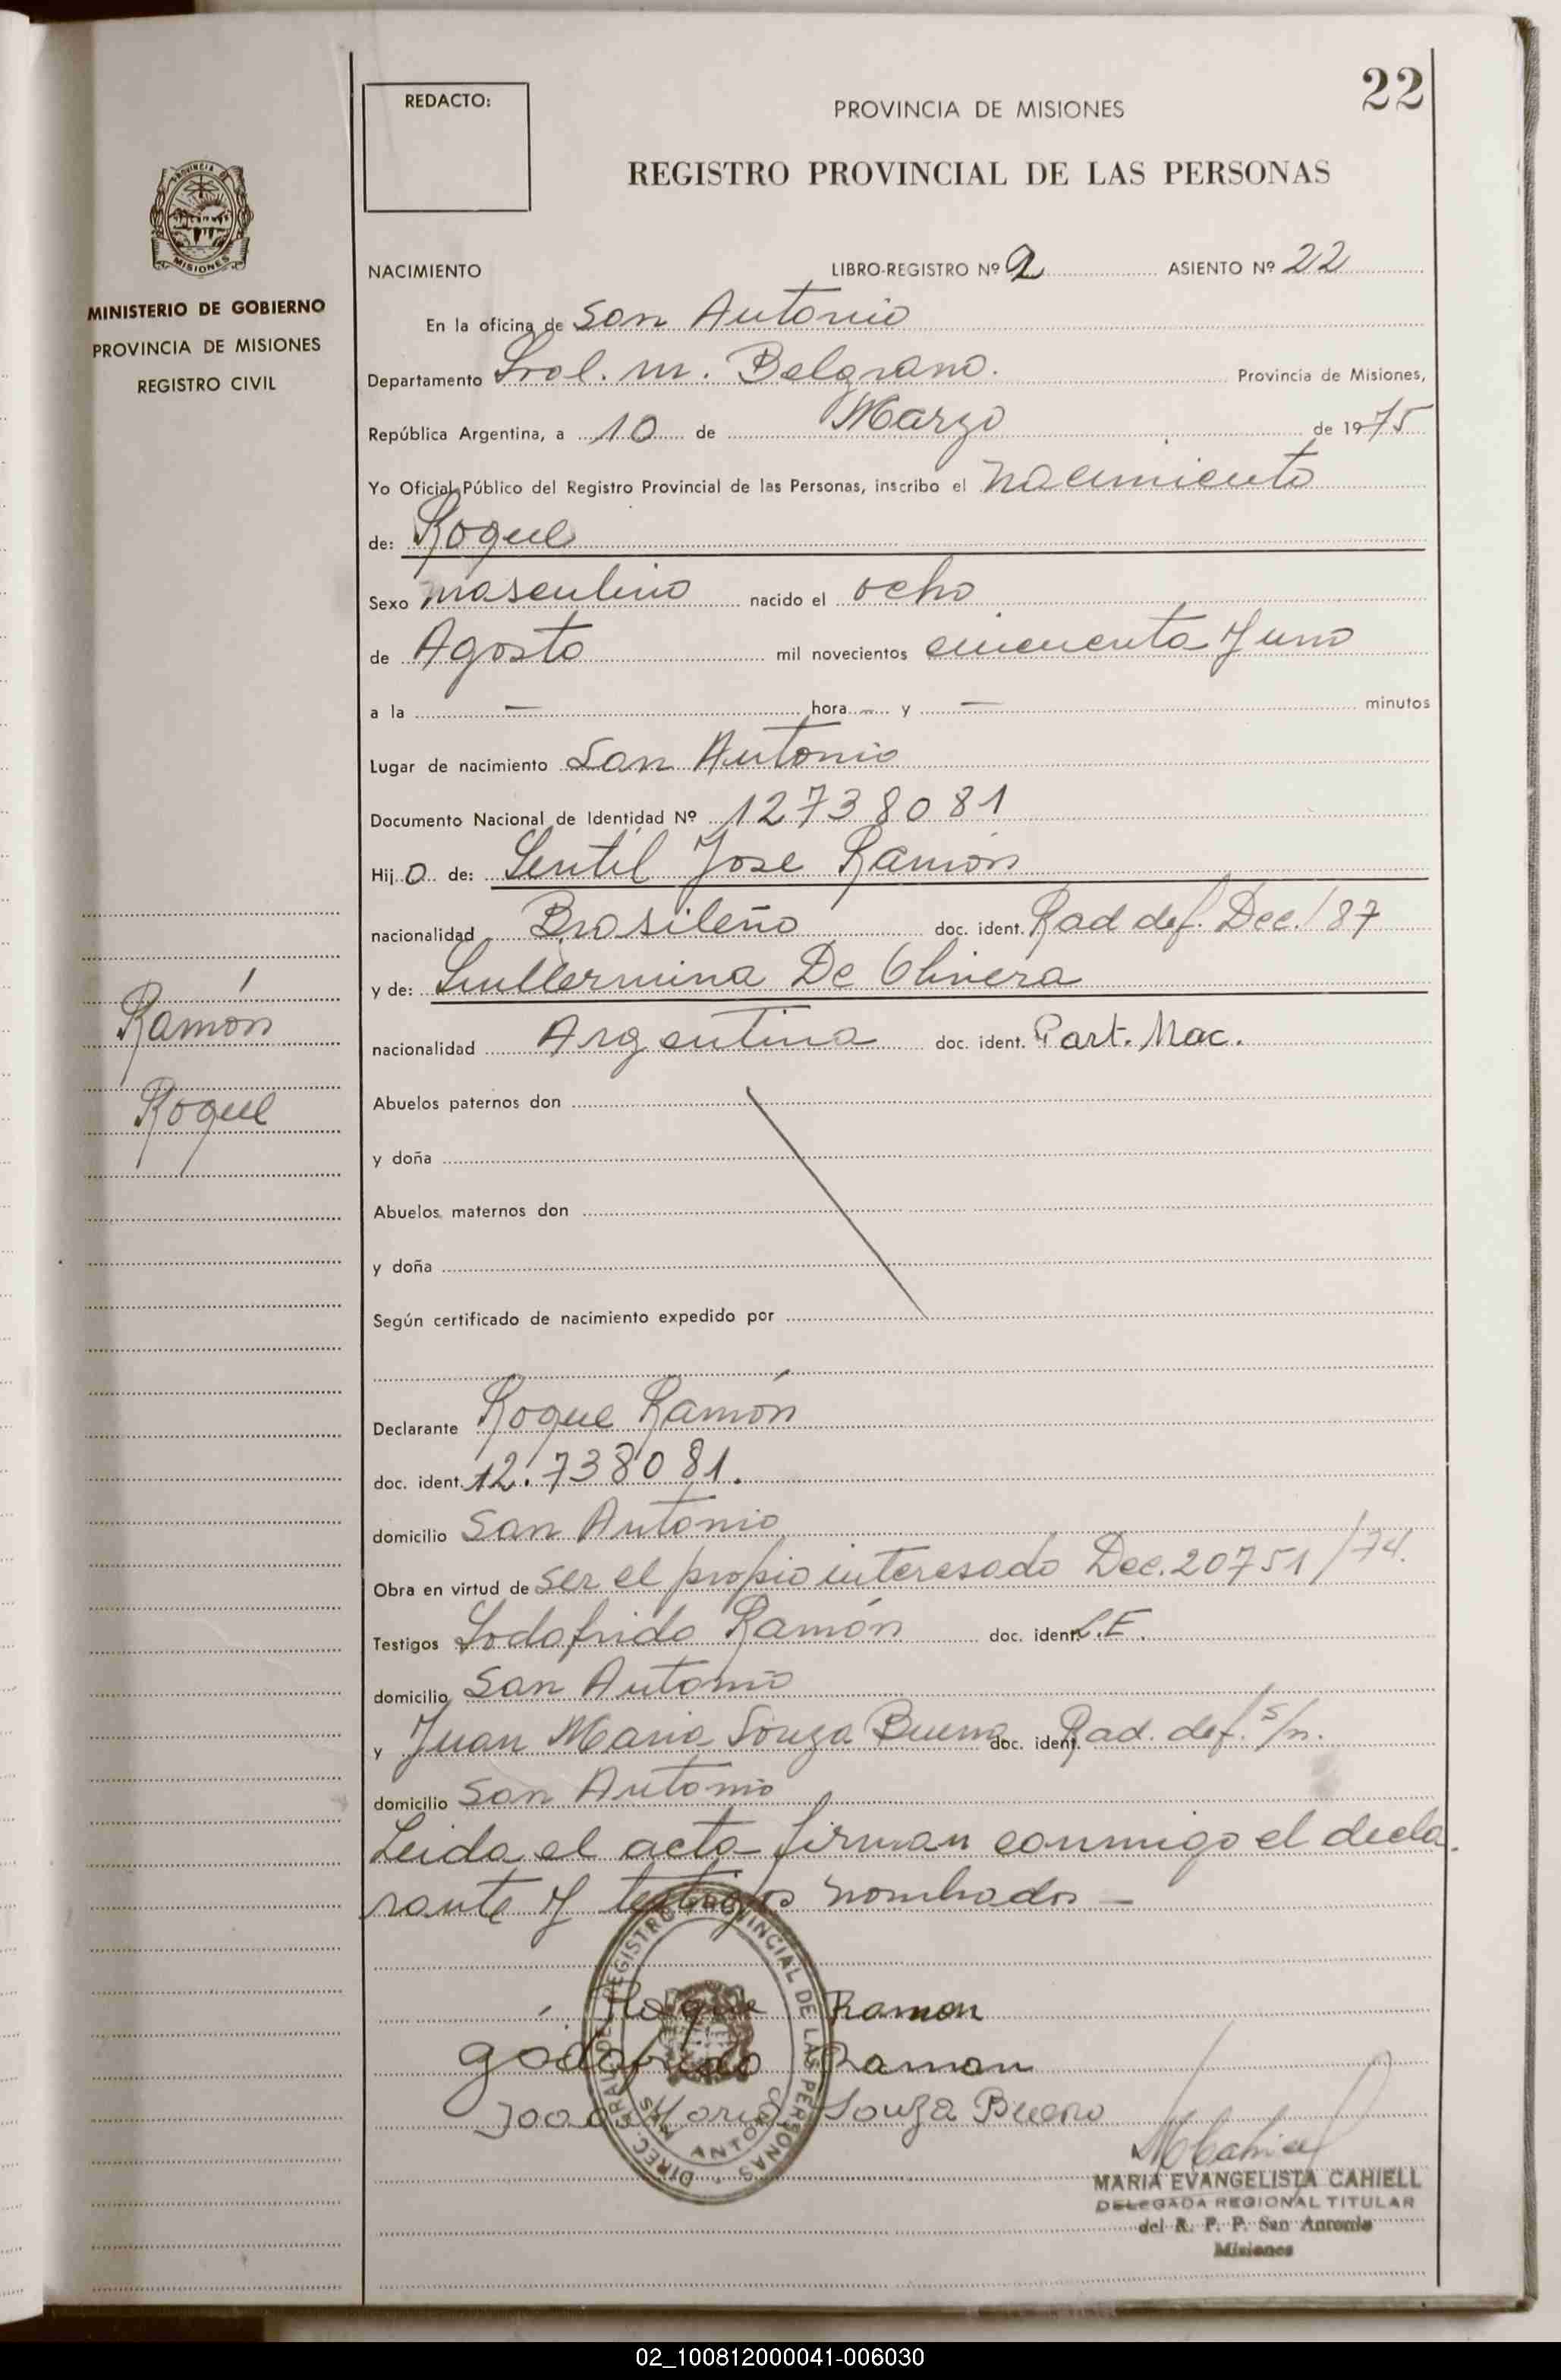 22
REDACTO:
PROVINCIA DE MISIONES
REGISTRO PROVINCIAL DE LAS PERSONAS
PROVINCIA DE
MISIONES
MINISTERIO DE GOBIERNO
PROVINCIA DE MISIONES
REGISTRO CIVIL
NACIMIENTO LIBRO-REGISTRO Nº 2 ASIENTO Nº 22
En la oficina de San Antonio
Departamento Gral. M. Belgrano. Provincia de Misiones,
República Argentina, a 10 de Marzo de 1975
Yo Oficial Público del Registro Provincial de las Personas, inscribo el nacimiento
de: Roque
Sexo masculino nacido el ocho
de Agosto mil novecientos cincuenta y uno
a la — hora — y — minutos
Lugar de nacimiento San Antonio
Documento Nacional de Identidad Nº 12738081
Hijo de: Gentil Jose Ramón
nacionalidad Brasileño doc. ident. Rad def. Dec./87
y de: Guillermina De Olivera
nacionalidad Argentina doc. ident. Part. Nac.
Ramón
Roque
Abuelos paternos don
y doña
Abuelos maternos don
y doña
Según certificado de nacimiento expedido por
Declarante Roque Ramón
doc. ident. 12.738081.
domicilio San Antonio
Obra en virtud de ser el propio interesado Dec. 20751/74.
Testigos Godofrido Ramón doc. ident. L.E.
domicilio San Antonio
y Juan Maria Souza Bueno doc. ident. Rad. def. s/n.
domicilio San Antonio
Leida el acta firman conmigo el decla-
rante y testigos nombrados —
Roque Ramon
godofrido Ramon
Joao Maria Souza Bueno
DIREC. GRAL. DEL REGISTRO PROVINCIAL DE LAS PERSONAS
SAN ANTONIO
MCahiell
MARIA EVANGELISTA CAHIELL
DELEGADA REGIONAL TITULAR
del R. P. P. San Antonio
Misiones
02_100812000041-006030